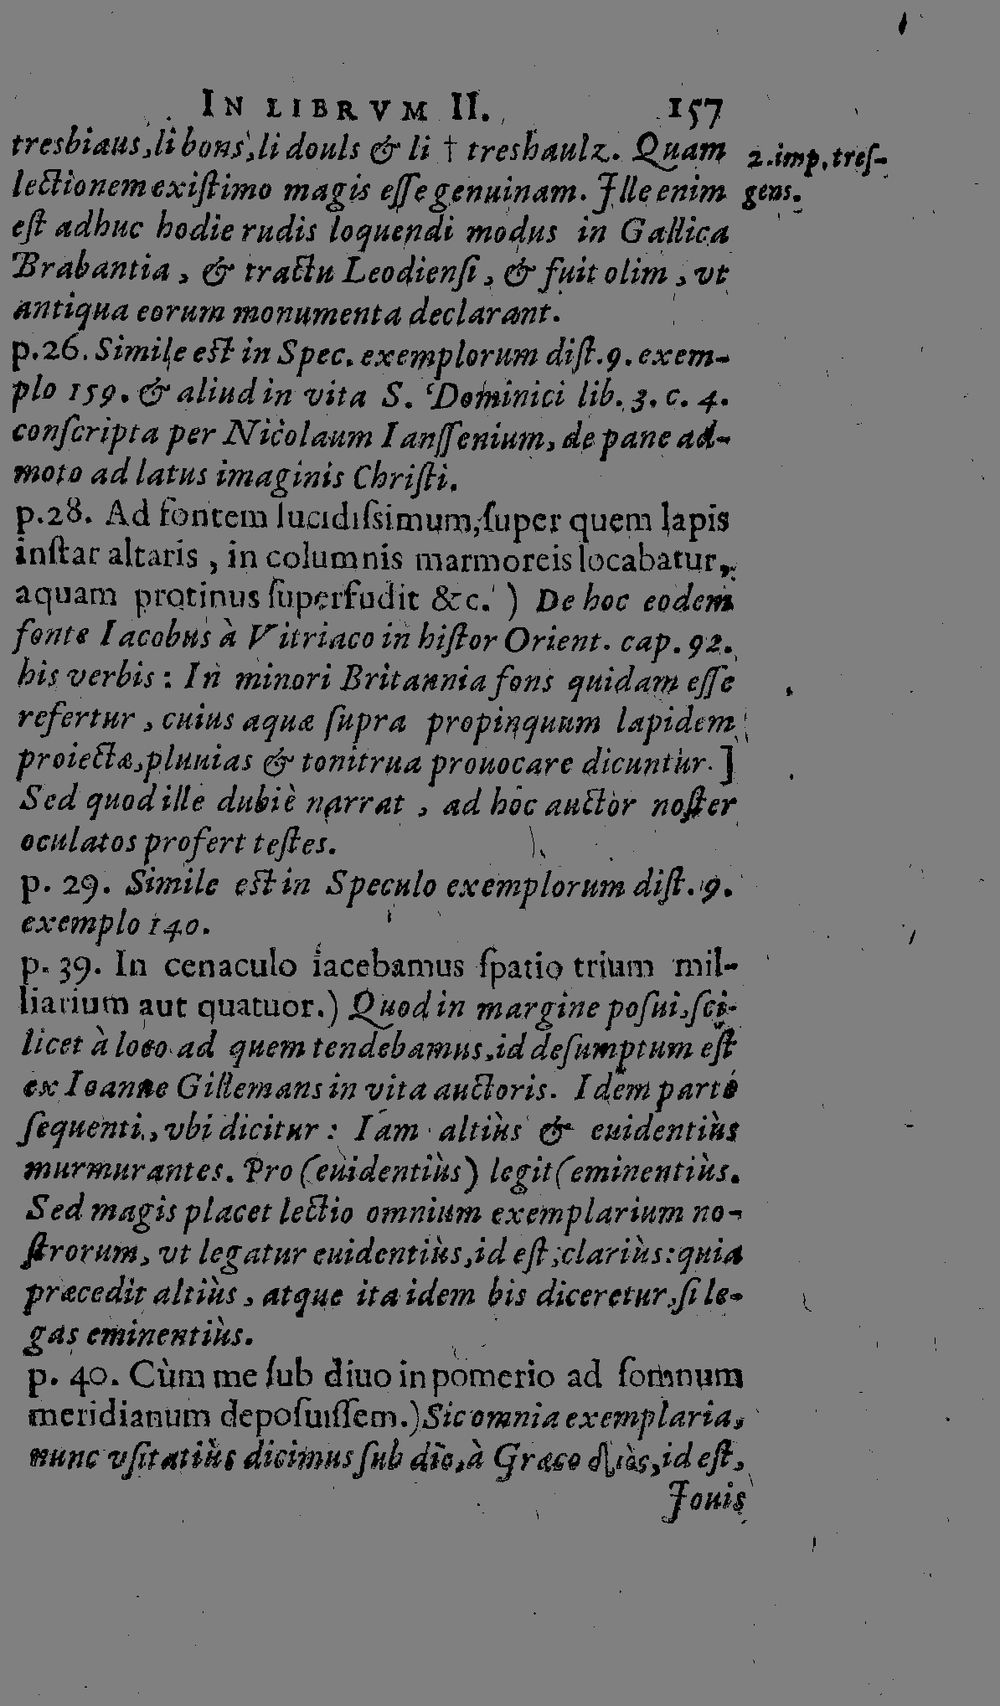 IN LIBRVM II. 157
tresbiaus, li bons, li douls & li † treshaulz. Quam
2. imp. tresgens.
lectionem existimo magis esse genuinam. Ille enim
est adhuc hodie rudis loquendi modus in Gallica
Brabantia, & tractu Leodiensi, & fuit olim, vt
antiqua eorum monumenta declarant.
p.26. Simile est in Spec. exemplorum dist.9. exem-
plo 159. & aliud in vita S. Dominici lib. 3. c. 4.
conscripta per Nicolaum Ianssenium, de pane ad-
moto ad latus imaginis Christi.
p.28. Ad fontem lucidissimum, super quem lapis
instar altaris, in columnis marmoreis locabatur,
aquam protinus superfudit &c.) De hoc eodem
fonte Iacobus à Vitriaco in histor Orient. cap. 92.
his verbis: In minori Britannia fons quidam esse
refertur, cuius aquæ supra propinquum lapidem
proiectæ, pluuias & tonitrua prouocare dicuntur.]
Sed quod ille dubiè narrat, ad hoc auctor noster
oculatos profert testes.
p. 29. Simile est in Speculo exemplorum dist. 9.
exemplo 140.
p. 39. In cenaculo iacebamus spatio trium mil-
liarium aut quatuor.) Quod in margine posui, sci-
licet à loco ad quem tendebamus, id desumptum est
ex Ioanne Gillemans in vita auctoris. Idem parte
sequenti, vbi dicitur: Iam altiùs & euidentiùs
murmurantes. Pro (euidentiùs) legit (eminentiùs.
Sed magis placet lectio omnium exemplarium no-
strorum, vt legatur euidentiùs, id est, clariùs: quia
præcedit altiùs, atque ita idem bis diceretur, si le-
gas eminentiùs.
p. 40. Cùm me sub diuo in pomerio ad somnum
meridianum deposuissem.) Sic omnia exemplaria,
nunc vsitatiùs dicimus sub dio, à Græco διὸς, id est,
Iouis